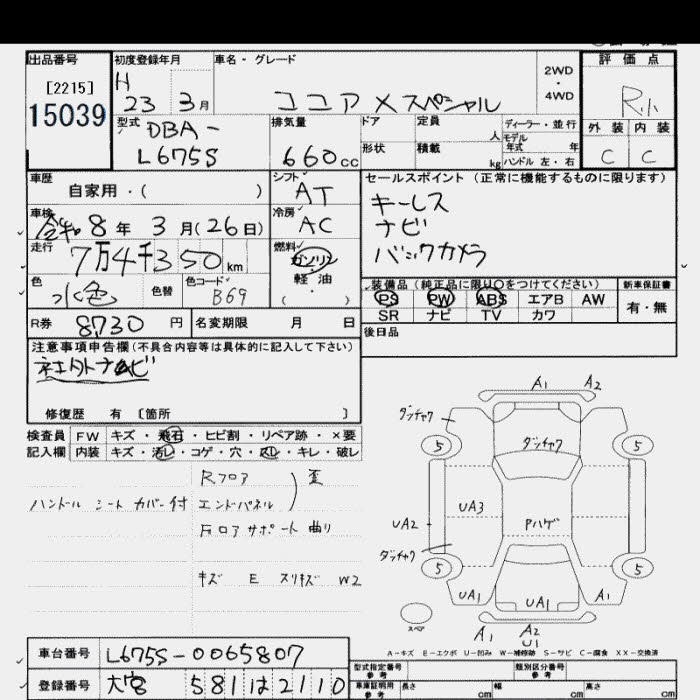 出品番号
[2215]
15039
初度登録年月
H 23 3月
車名・グレード
ココア Xスペシャル
2WD
・
4WD
評価点
R小
外装 内装
C C
型式
DBA-
L675S
排気量
660cc
ドア
形状
定員 人
積載 kg
ディーラー・並行
モデル
年式 年
ハンドル 左・右
車歴
自家用・( )
シフト
AT
セールスポイント(正常に機能するものに限ります)
キーレス
ナビ
バックカメラ
車検
令和8年 3月(26日)
冷房
AC
走行
7万4千350km
燃料
ガソリン
軽油
( ・ )
色
水色
色替
色コード
B69
装備品(純正品に限り〇をつけてください)
PS PW ABS エアB AW
SR ナビ TV カワ
新車保証書
有・無
R券 8730円
名変期限 月 日
後日品
注意事項申告欄(不具合内容等は具体的に記入して下さい)
修復歴 有 〔箇所 〕
検査員 FW キズ・飛石・ヒビ割・リペア跡・×要
記入欄 内装 キズ・汚レ・コゲ・穴・スレ・キレ・破レ
Rフロア
歪
ハンドル シートカバー付
エンドパネル
Fロアサポート曲り
キズ E スリキズ W2
A1 A2
ダッチャク
5 5
ダッチャク
UA3
UA2
Pハゲ
ダッチャク
5 5
UA1 UA1 A1
スペア
A1 A2
U1
A-キズ E-エクボ U-凹み W-補修跡 S-サビ C-腐食 XX-交換済
車台番号 L675S-0065807
登録番号 大宮 581 は 2110
型式指定番号
参考
類別区分番号
参考
車庫証明用
参考
長さ cm 幅 cm 高さ cm